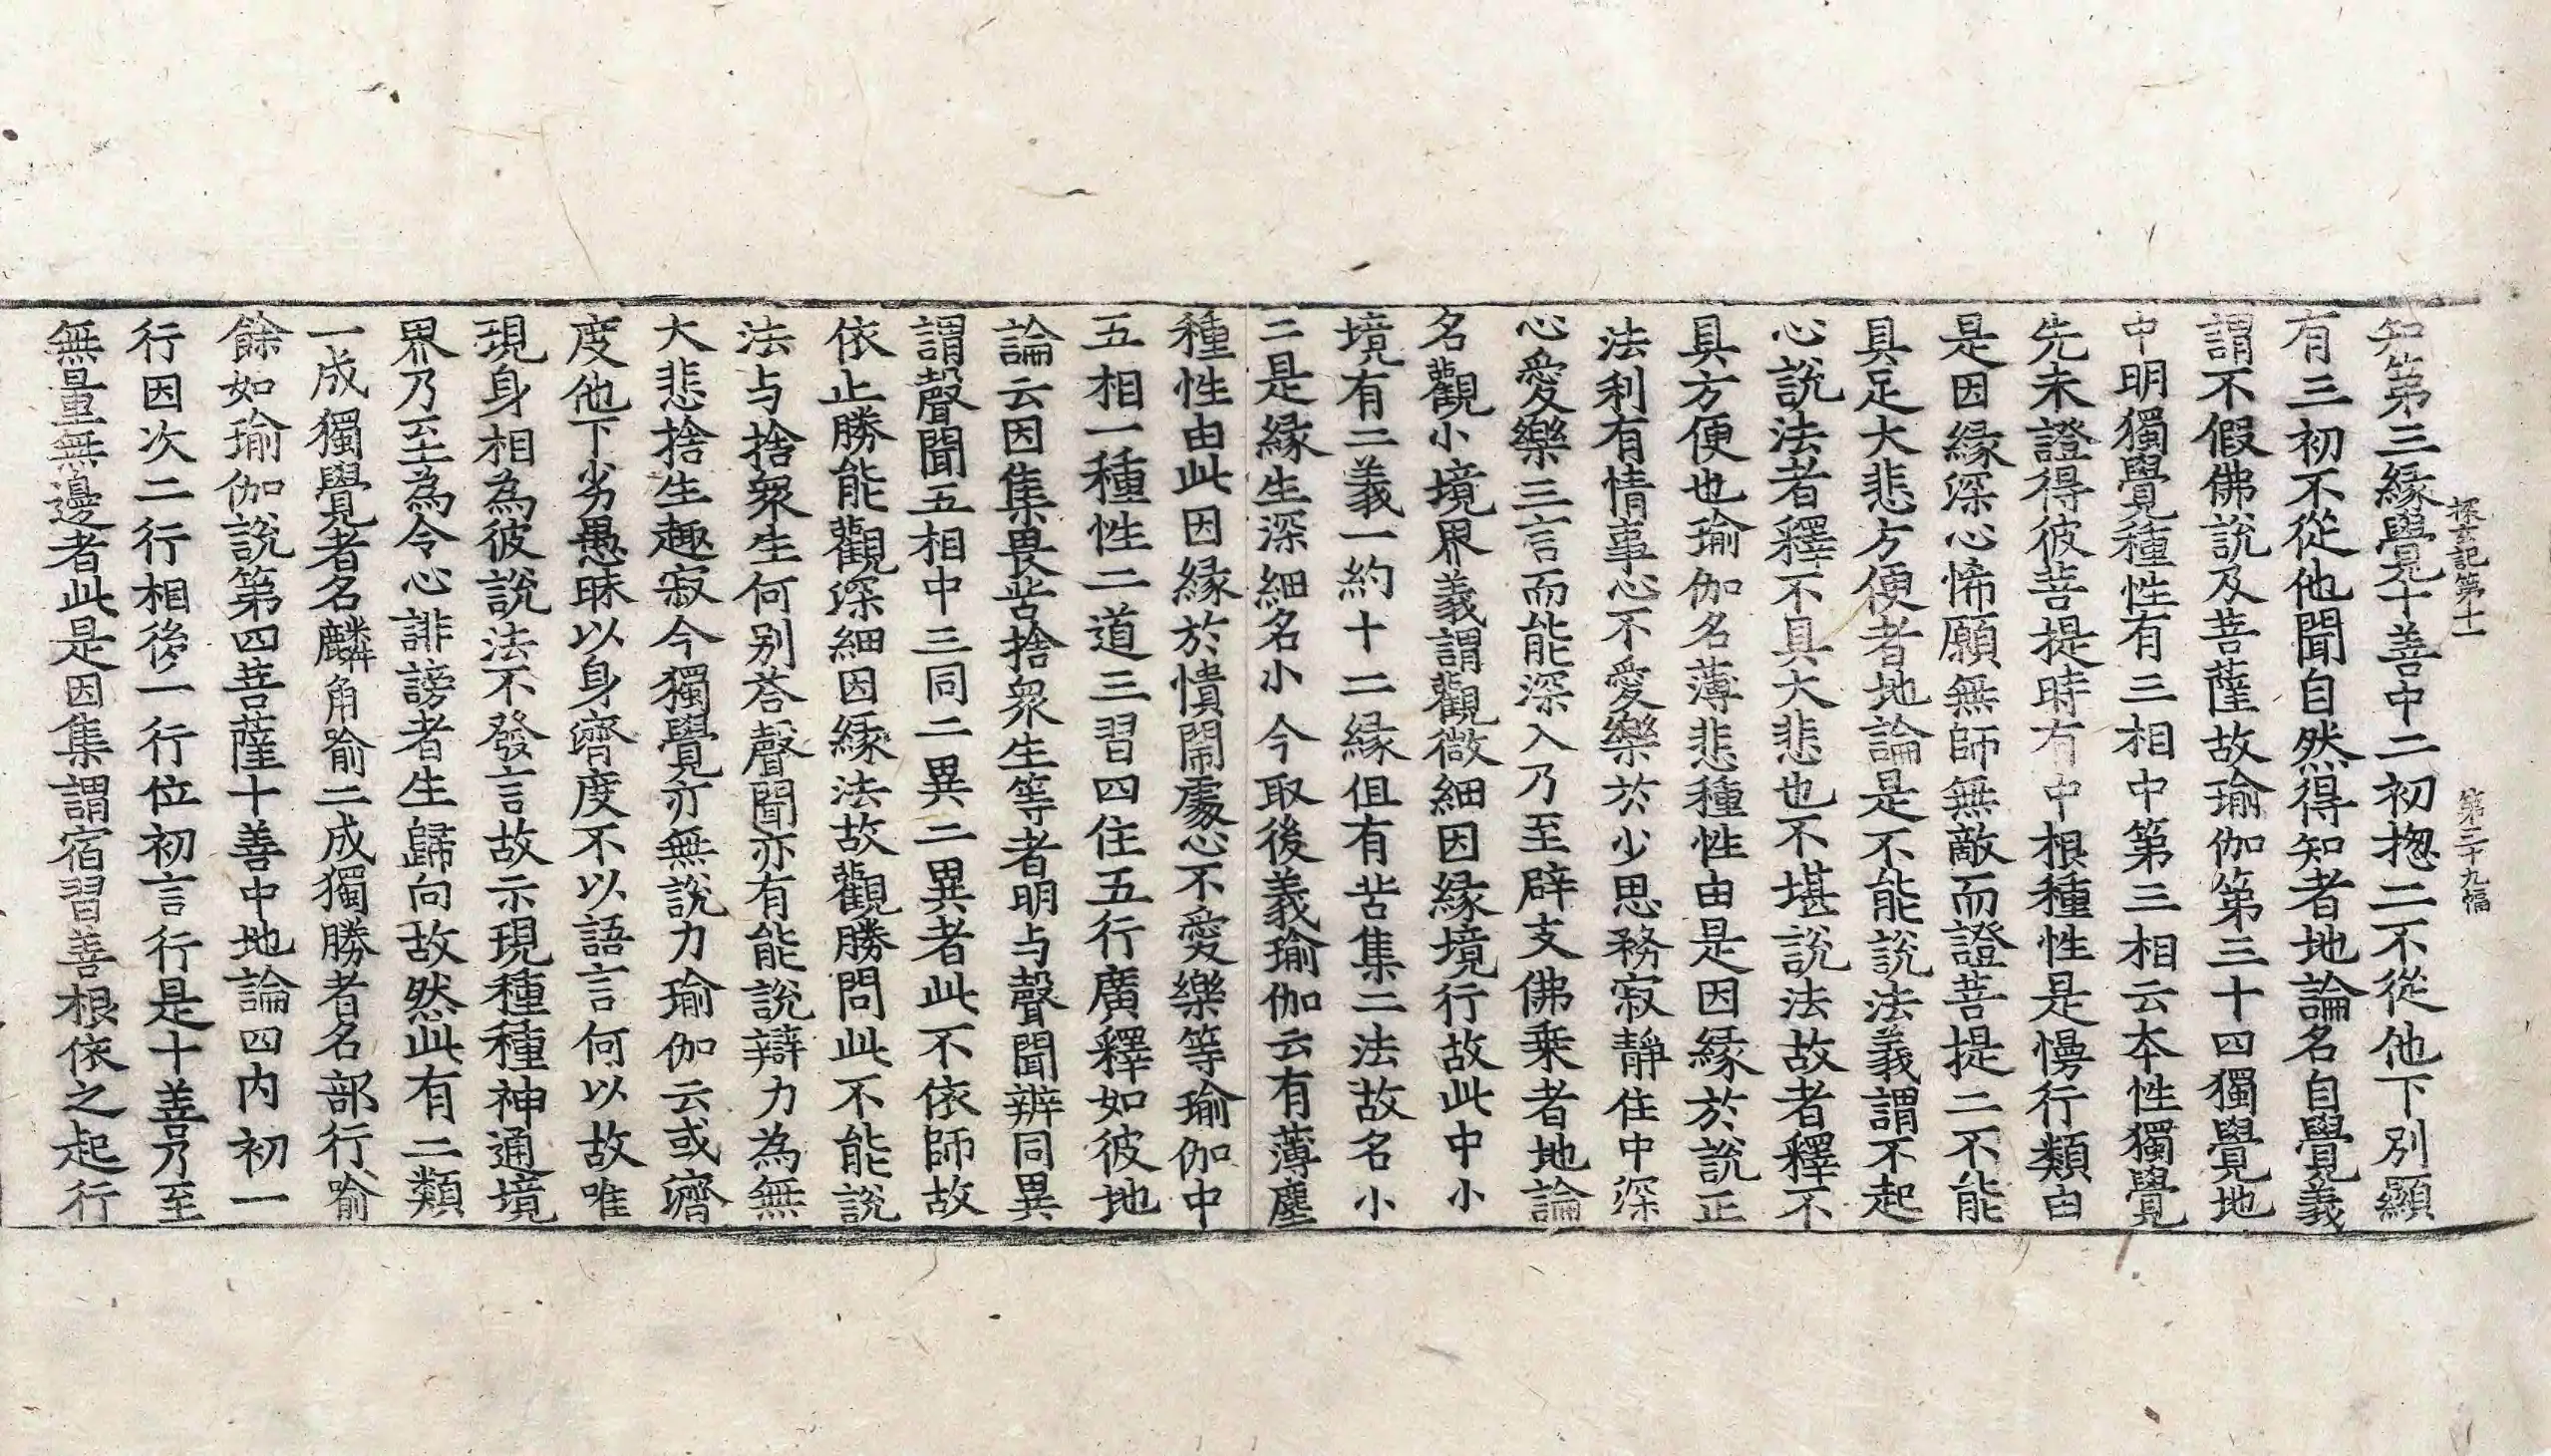 探玄記第十一 第三十九幅
知第三緣覺十善中二初揔二不從他下別顯
有三初不從他聞自然得知者地論名自覺義
謂不假佛說及菩薩故瑜伽第三十四獨覺地
中明獨覺種性有三相中第三相云本性獨覺
先未證得彼菩提時有中根種性是慢行類由
是因緣深心悕願無師無敵而證菩提二不能
具足大悲方便者地論是不能說法義謂不起
心說法者釋不具大悲也不堪說法故者釋不
具方便也瑜伽名薄悲種性由是因緣於說正
法利有情事心不愛樂於少思務寂靜住中深
心愛樂三言而能深入乃至辟支佛乗者地論
名觀小境界義謂觀微細因緣境行故此中小
境有二義一約十二緣但有苦集二法故名小
二是緣生深細名小今取後義瑜伽云有薄塵
種性由此因緣於憒閙處心不愛樂等瑜伽中
五相一種性二道三習四住五行廣釋如彼地
論云因集畏苦捨衆生等者明与聲聞辨同異
謂聲聞五相中三同二異二異者此不依師故
依止勝能觀深細因緣法故觀勝問此不能說
法与捨衆生何別荅聲聞亦有能說辯力為無
大悲捨生趣寂今獨覺亦無說力瑜伽云或濟
度他下劣愚昧以身濟度不以語言何以故唯
現身相為彼說法不發言故示現種種神通境
界乃至為令心誹謗者生歸向故然此有二類
一成獨覺者名麟角喻二成獨勝者名部行喻
餘如瑜伽說第四菩薩十善中地論四内初一
行因次二行相後一行位初言行是十善乃至
無量無邊者此是因集謂宿習善根依之起行